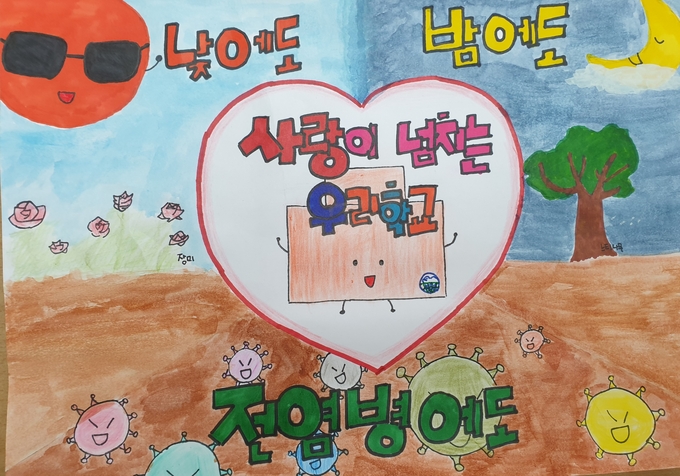 낮에도
밤에도
사랑이 넘치는
우리학교
장미
전염병에도